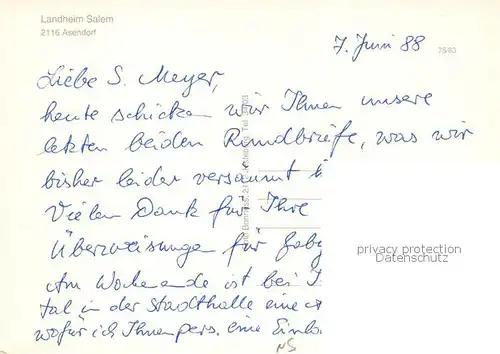 Landheim Salem
2116 Asendorf
7. Juni 88
78/83
Liebe S. Meyer,
heute schicken wir Ihnen unsere
letzten beiden Rundbriefe, was wir
bisher leider versäumt
Vielen Dank für Ihre
Überweisungen für
privacy protection
Datenschutz
Am Wochenende ist bei
tal in der Stadthalle eine
wofür ich Ihnen pers. eine